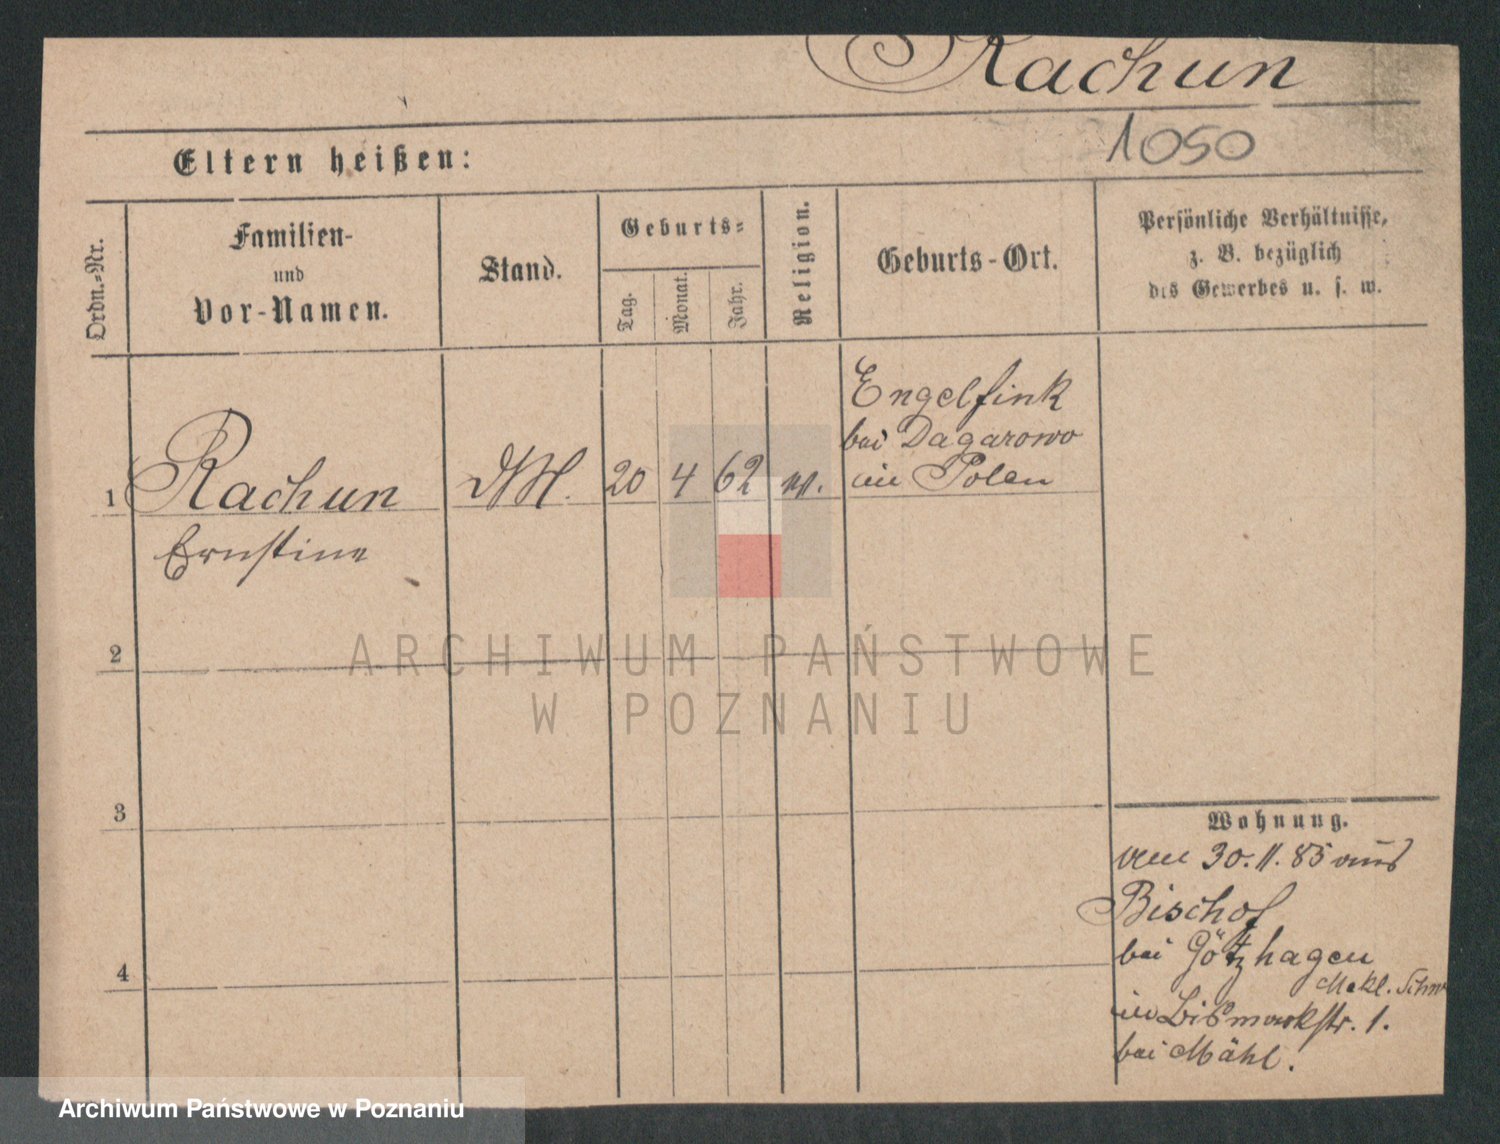 Rachun
1050
Eltern heißen:
Ordn.-Nr.
Familien-
und
Vor-Namen.
Stand.
Geburts-
Tag.
Monat.
Jahr.
Religion.
Geburts-Ort.
Persönliche Verhältnisse,
z. B. bezüglich
des Gewerbes u. s. w.
1
Rachun
Ernstine
20
4
62
Engelfink
bei Dagarowo
in Polen
2
3
4
Wohnung.
am 30.11.85 aus
Bischof
bei Götzhagen
Mekl. Schw
in Bismarkstr. 1.
bei Mähl.
ARCHIWUM PAŃSTWOWE
W POZNANIU
Archiwum Państwowe w Poznaniu